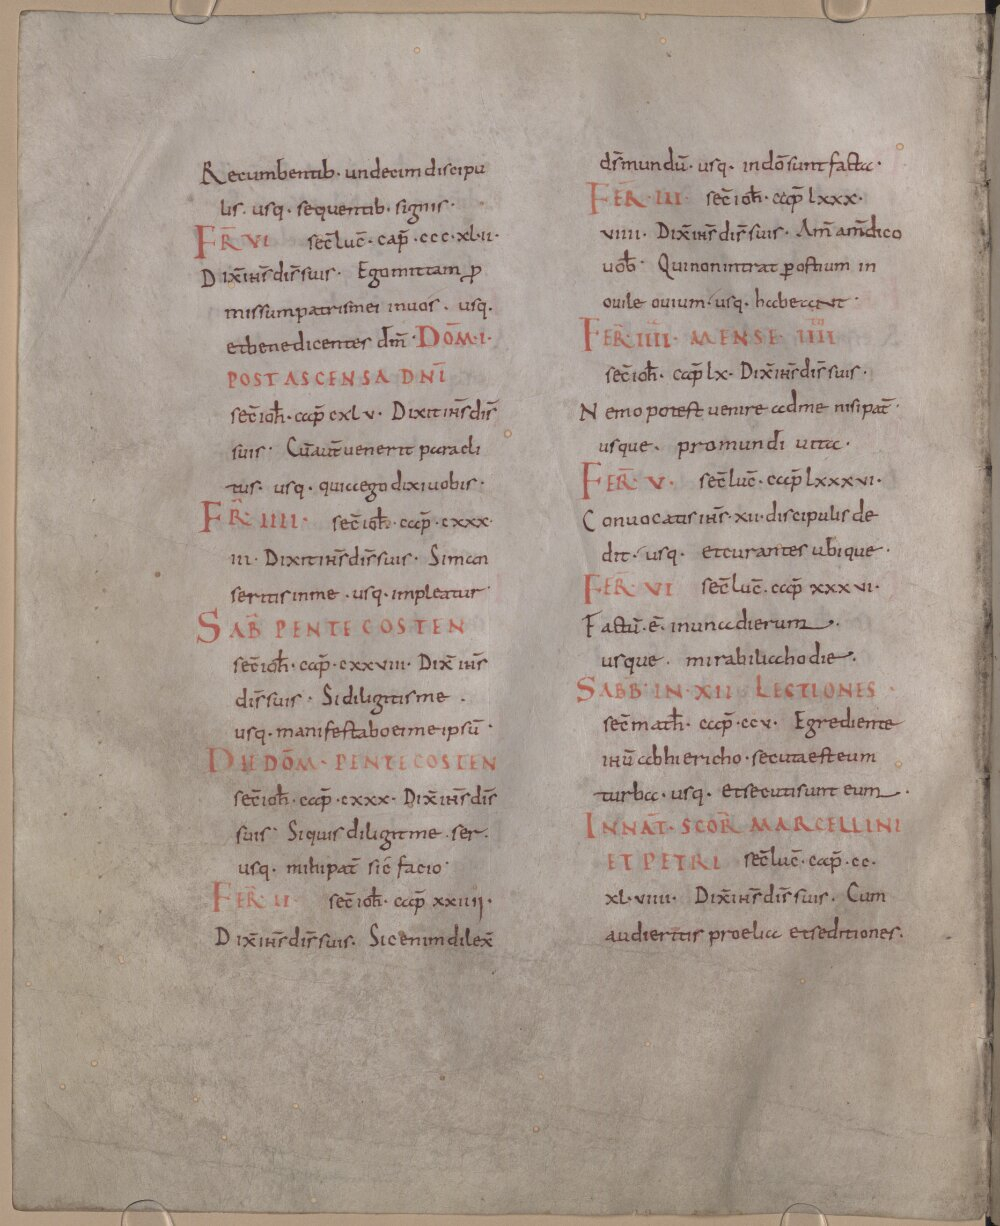 Recumbentib· undecim discipu
lis· usq· sequentib· signis·
FR̄ VI sec̄ luc̄· cap̄· ccc·xl·ii·
Dix̄ ih̄s disc̄ suis· Ego mittam p̱
missum patris mei in uos· usq·
et benedicentes dm̄· DOM̄·I·
POST ASCENSA DNĪ
sec̄ ioh̄· cap̄ cxlv· Dixit ih̄s dis̄
suis· Cū aūt uenerit paracli
tus· usq· quia ego dixi uobis·
FR̄ IIII· sec̄ ioh̄· cap̄· cxxx·
iii· Dixit ih̄s dis̄ suis· Si man
seritis in me· usq· impleatur
SAB̄ PENTECOSTEN
sec̄ ioh̄· cap̄· cxxviii· Dix̄ ih̄s
dis̄ suis· Si diligitis me·
usq· manifestabo ei me ipsū·
DIE DOM̄· PENTECOSTEN
sec̄ ioh̄· cap̄· cxxx· Dix̄ ih̄s dis̄
suis· Si quis diligit me· ser·
usq· mihi pat̄ sic̄ facio·
FER̄ II· sec̄ ioh̄· cap̄ xxiiii·
Dix̄ ih̄s dis̄ suis· Sic enim dilex̄
ds̄ mundū· usq· in dō sunt facta·
FER̄· III· sec̄ ioh̄· cap̄ lxxx·
viiii· Dix̄ ih̄s dis̄ suis· Am̄ am̄ dico
uob̄· Qui non intrat p̱ ostium in
ouile ouium· usq· habeant·
FER̄· IIII· MENSE· IIII
sec̄ ioh̄· cap̄ lx· Dix̄ ih̄s dis̄ suis·
Nemo potest uenire ad me nisi pat̄·
usque· pro mundi uita·
FER̄· V· sec̄ luc̄· cap̄ lxxxvi·
Conuocatis ih̄s· xii· discipulis de
dit· usq· et curantes ubique·
FER̄· VI sec̄ luc̄· cap̄ xxxvi·
Factū· ē· in una dierum·
usque· mirabilia hodie·
SABB̄· IN· XII· LECTIONES·
sec̄ math̄· cap̄· ccv· Egrediente
ih̄u ab hiericho· secuta est eum
turba· usq· et secuti sunt eum·
IN NAT̄· SCOR̄ MARCELLINI
ET PETRI sec̄ luc̄· cap̄· cc·
xl·viiii· Dix̄ ih̄s dis̄ suis· Cum
audieritis proelia et seditiones·